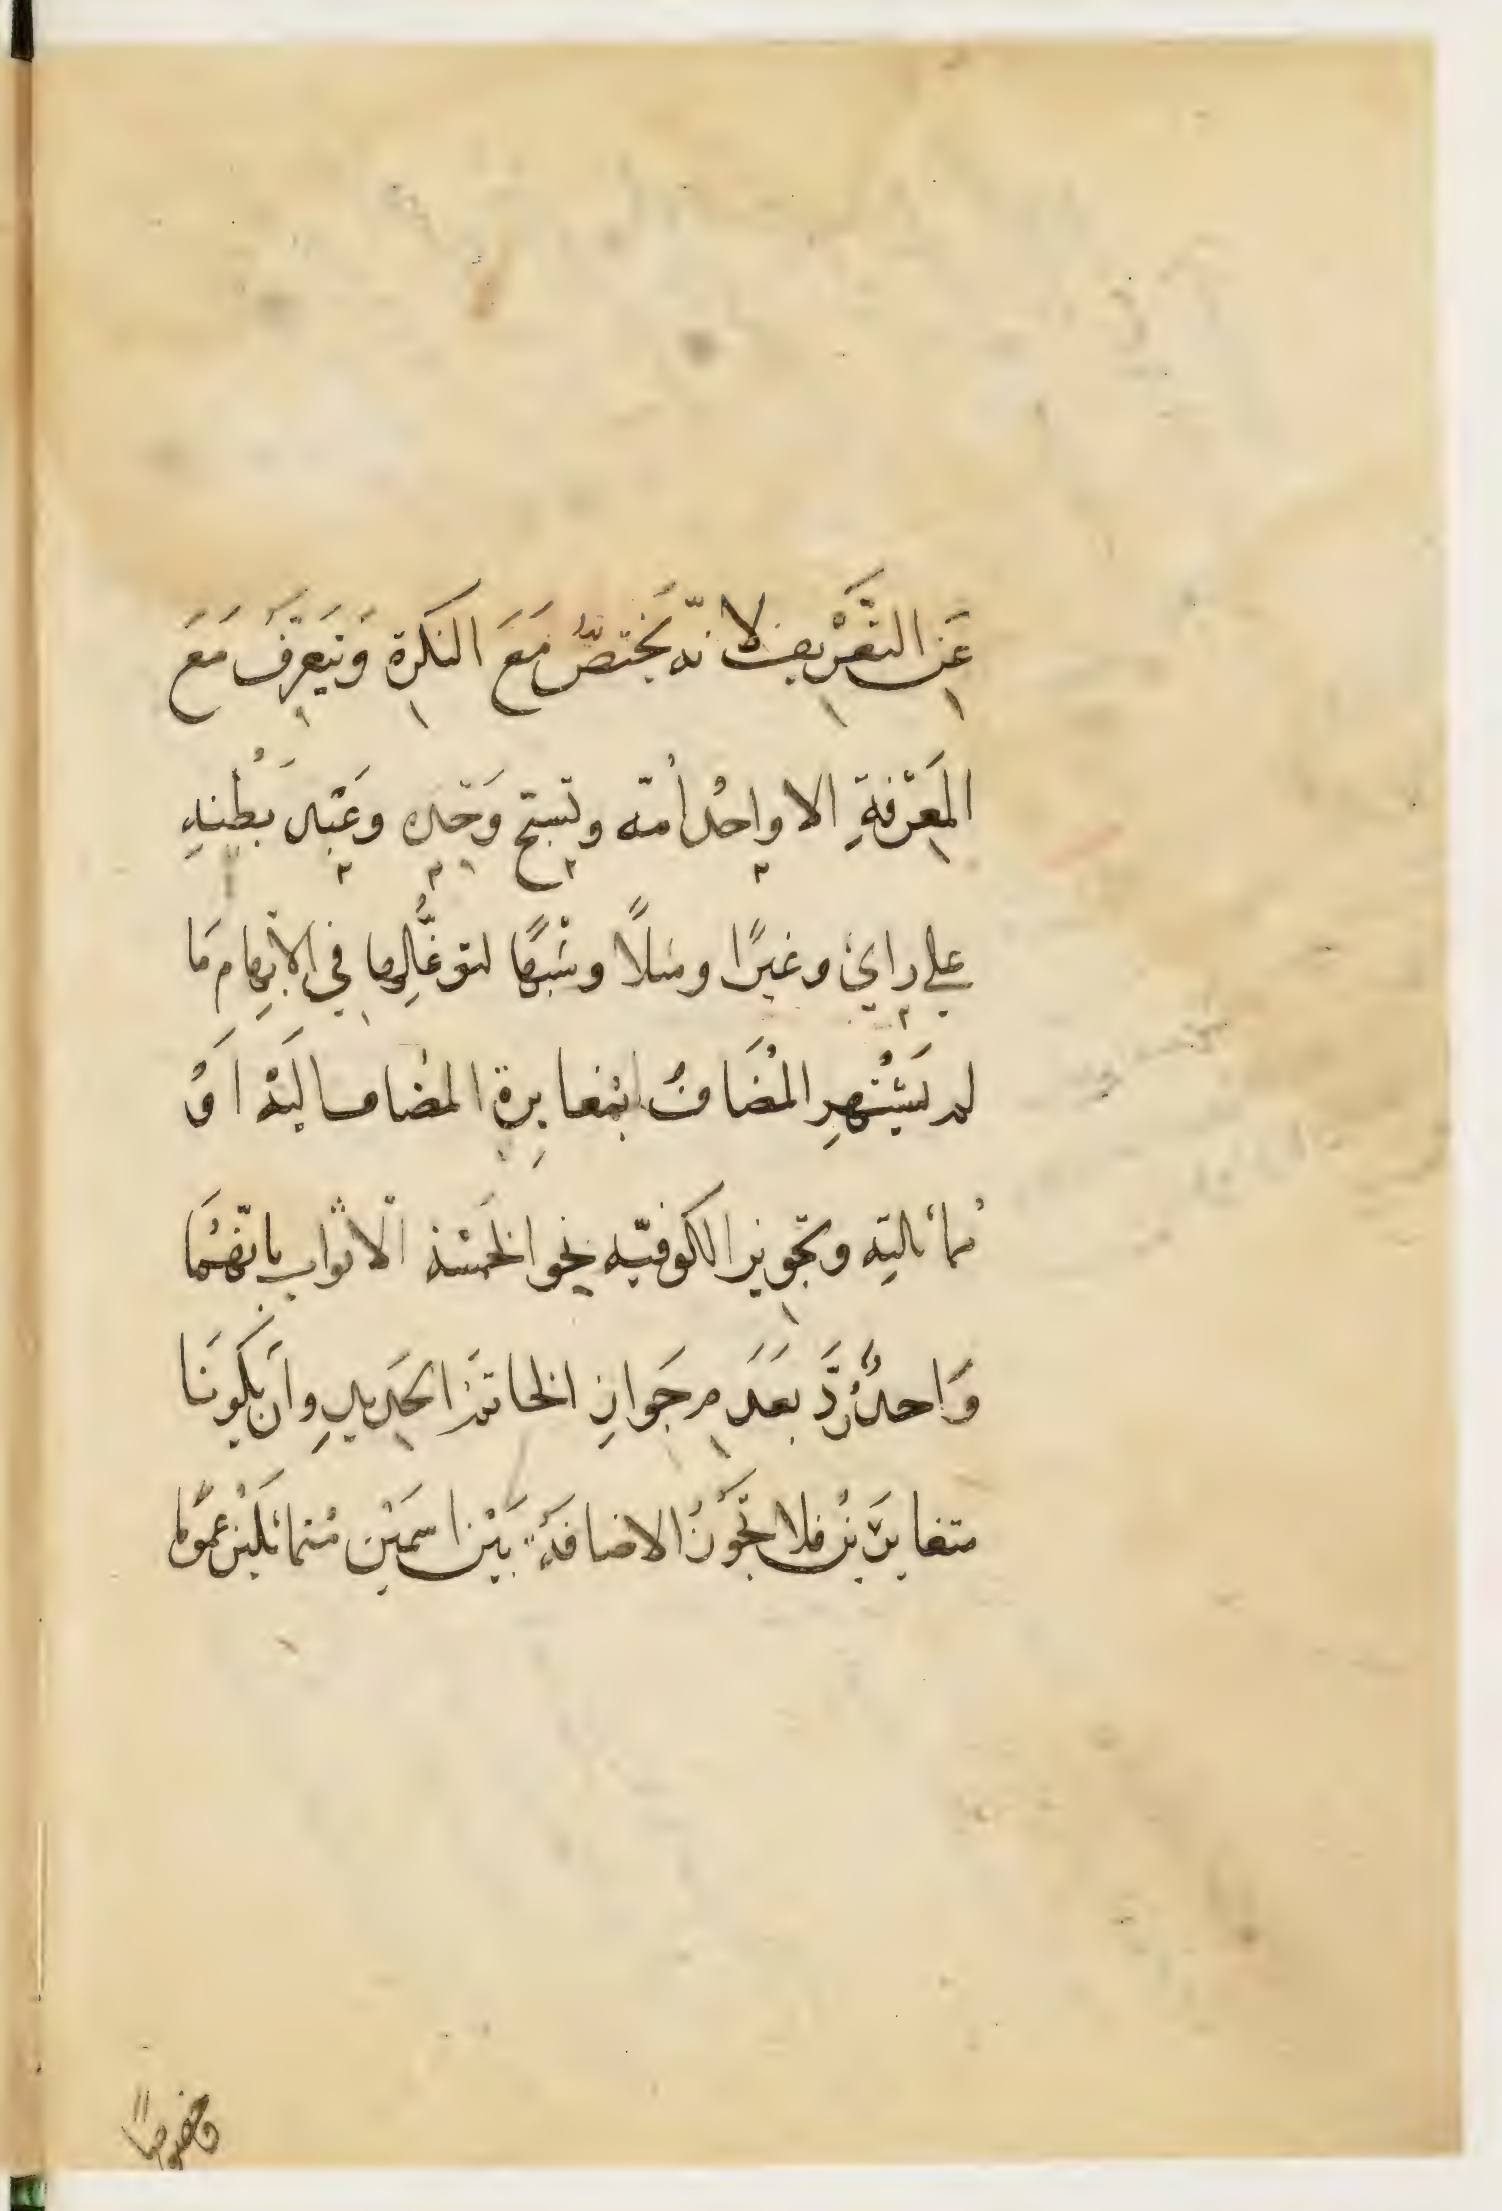 عَنِ التَّعْرِيفِ لانّه يَختصُّ مَعَ النكرةِ وَيَتَعرَّفُ مَعَ
المَعْرِفَةِ الا واحِدُ اُمّه ونسيج وَحْدِه وعَبْد بَطْنِهِ
علي رايٍ وغيرًا ومثلاً وشْبهًا لتوغُّلِها في الاِبْهام مَا
لم يَشْتهِرِ المُضَافُ بمُغايرةِ المضاف اليَهْ اَوْ
مماثَلَتِه وتجويز الكوفيّه نحو الخَمْسَة الاَثْواب بانّهُمَا
وَاحدٌ رُدَّ بعَدَمِ جَوازِ الخاتَم الحَدِيدِ واَن يكونَا
متغايِرَيْنِ فلا تَجُوزُ الاضافَةُ بَيْنَ اسمَيْنِ متماثلَيْنِ عمُومًا
خصُوصًا